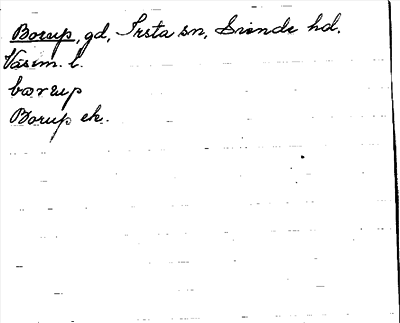 Borup, gd, Irsta sn, Siende hd.
Väsm. l.
bᴏrup
Borup ek.